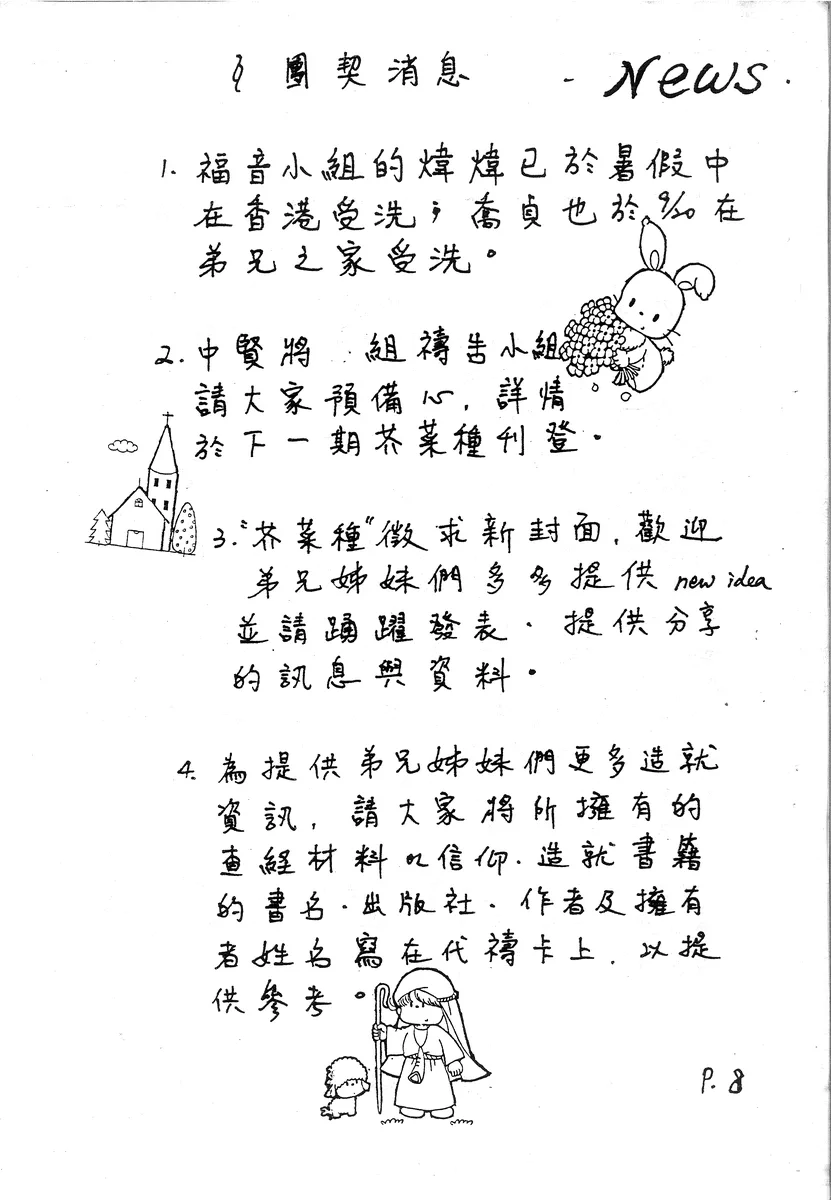 § 團契消息 - News.
1. 福音小組的煒煒已於暑假中
在香港受洗；喬貞也於9/20在
弟兄之家受洗。
2. 中賢將 組禱告小組
請大家預備心, 詳情
於下一期芥菜種刊登。
3. "芥菜種"徵求新封面, 歡迎
弟兄姊妹們多多提供 new idea
並請踴躍發表. 提供分享
的訊息與資料。
4. 為提供弟兄姊妹們更多造就
資訊, 請大家將所擁有的
查經材料以信仰.造就書籍
的書名.出版社. 作者及擁有
者姓名寫在代禱卡上, 以提
供參考。
P. 8